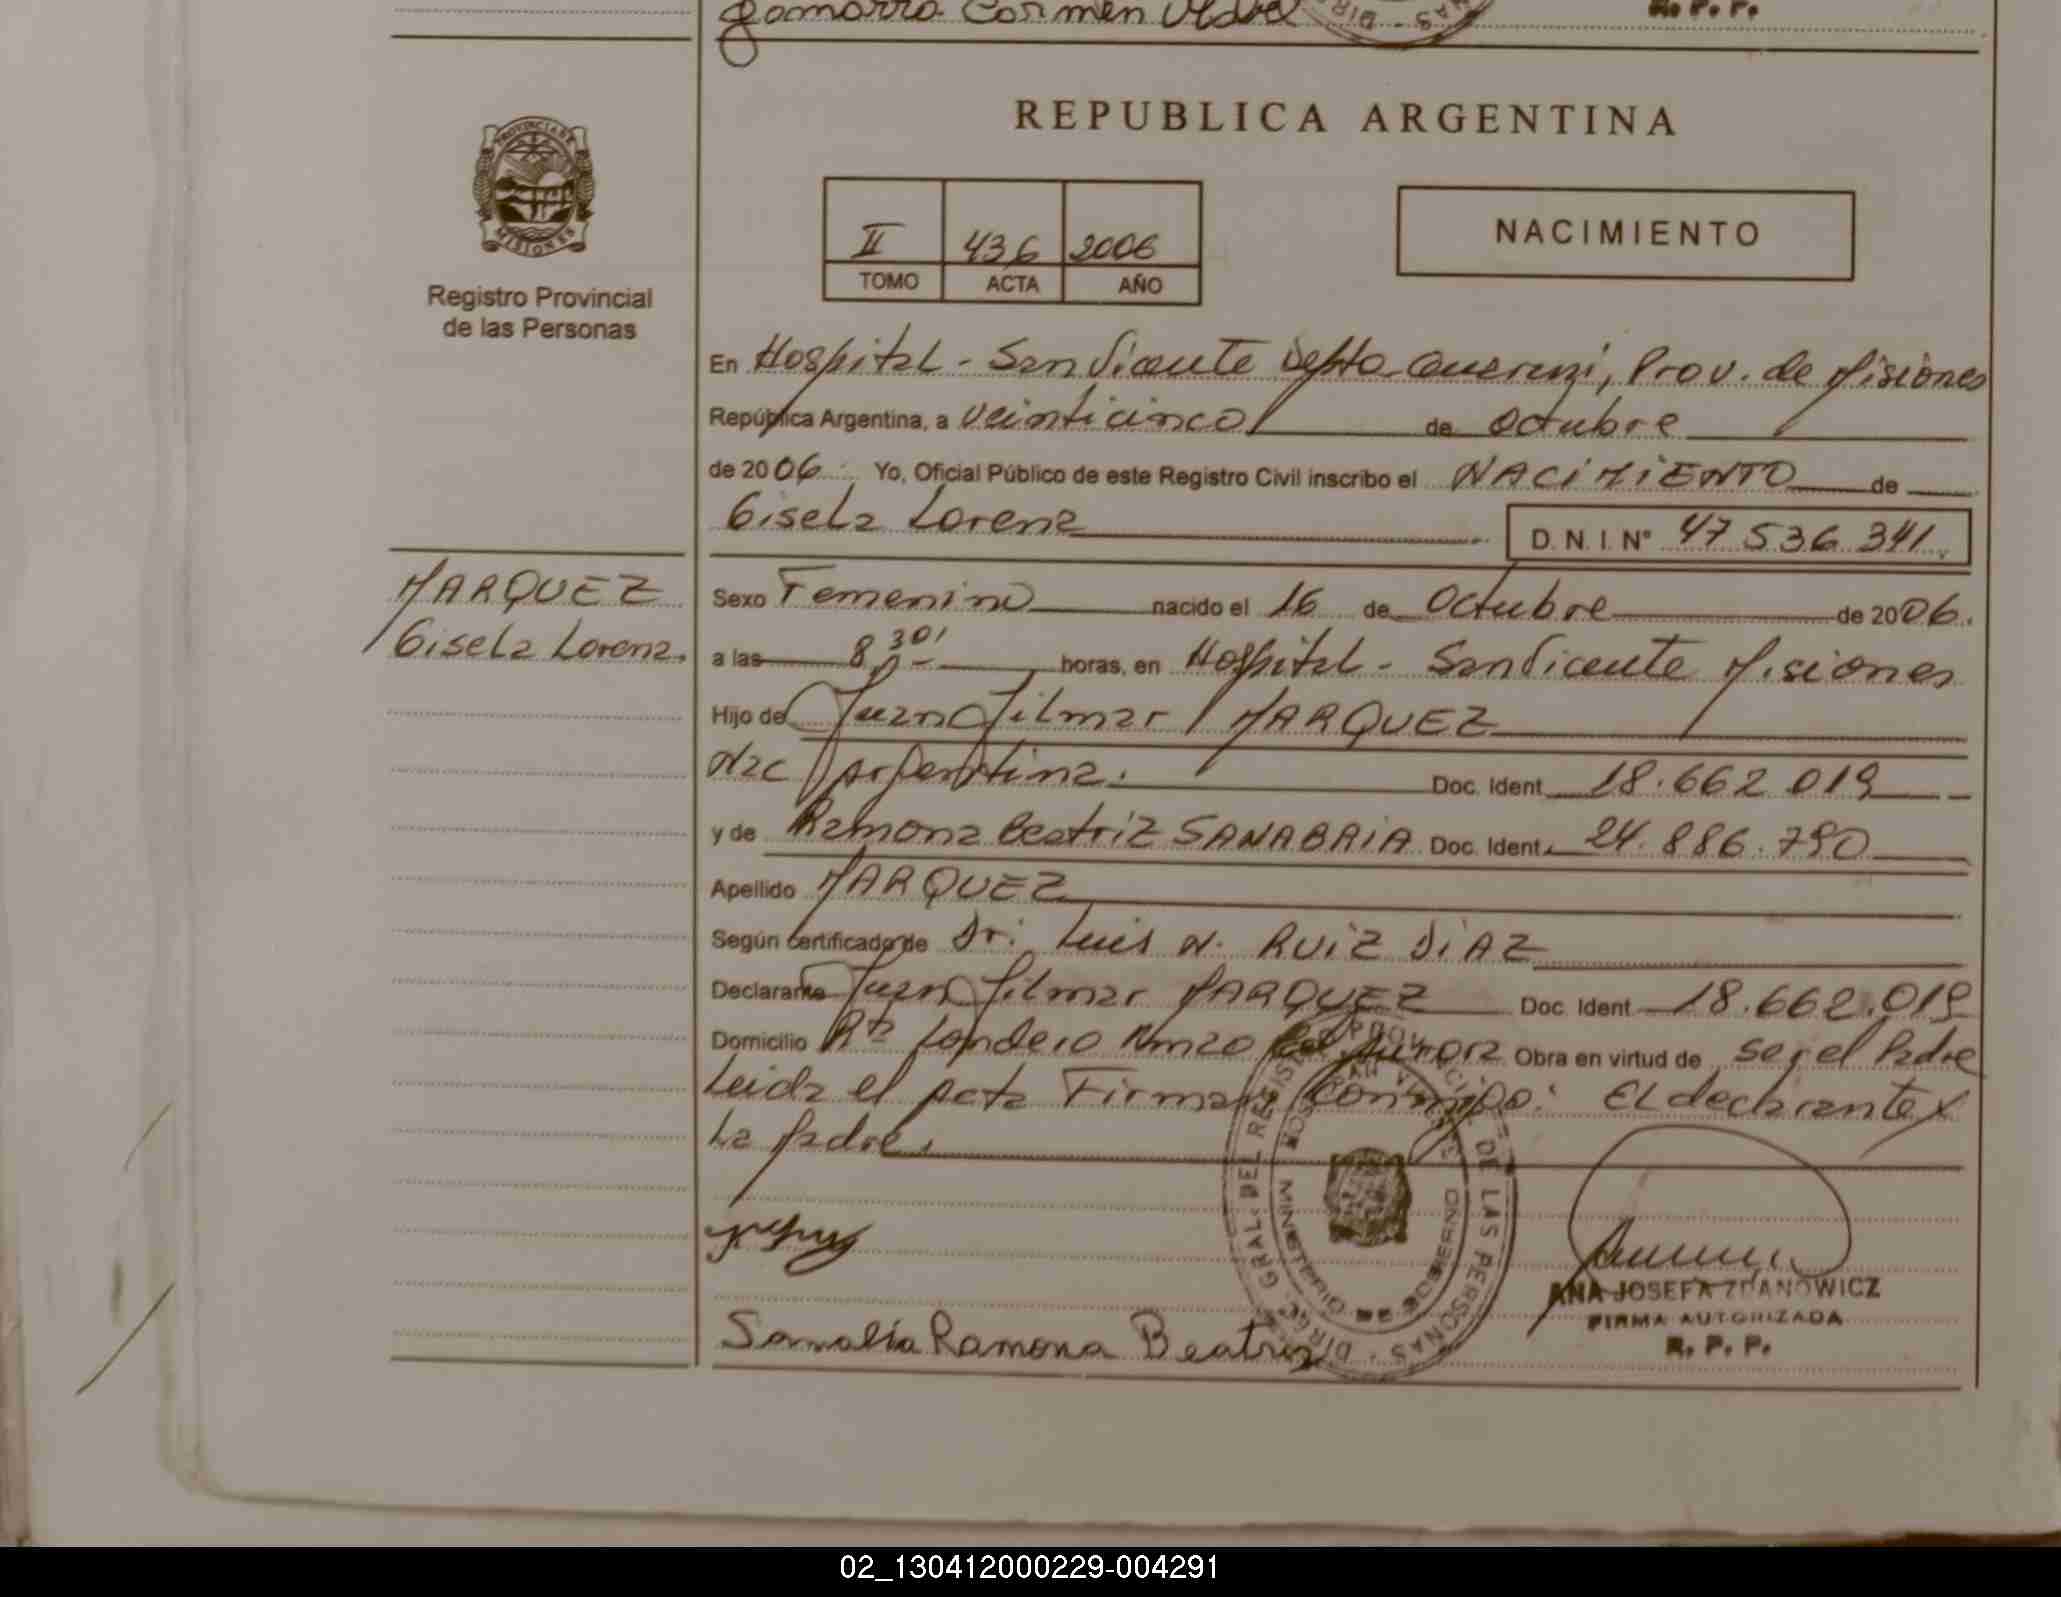 Gamarra Carmen
R. P. P.
REPUBLICA ARGENTINA
PROVINCIA DE MISIONES
II 436 2006
TOMO ACTA AÑO
NACIMIENTO
Registro Provincial
de las Personas
En Hospital - San Vicente Depto Guarani, Prov. de Misiones
República Argentina, a veinticinco de Octubre
de 2006 Yo, Oficial Público de este Registro Civil inscribo el NACIMIENTO de
Gisela Lorena D. N. I. N° 47 536 341
MARQUEZ
Gisela Lorena.
Sexo Femenino nacido el 16 de Octubre de 2006.
a las 8,30' horas, en Hospital - San Vicente Misiones
Hijo de Juan Gilmar MARQUEZ
Nac Argentina. Doc. Ident. 18.662 019
y de Ramona Beatriz SANABRIA Doc. Ident. 24.886.790
Apellido MARQUEZ
Según certificado de Dr. Luis N. RUIZ DIAZ
Declarante Juan Gilmar MARQUEZ Doc. Ident. 18.662.019
Domicilio Aurora Obra en virtud de ser el Padre
Leida el acta Firman Conmigo: El declarante y
La Madre.
DIR. GRAL. DEL REGISTRO PROVINCIAL DE LAS PERSONAS
MINISTERIO DE GOBIERNO
ANA JOSEFA ZDANOWICZ
FIRMA AUTORIZADA
R. P. P.
Ramona Beatriz
02_130412000229-004291